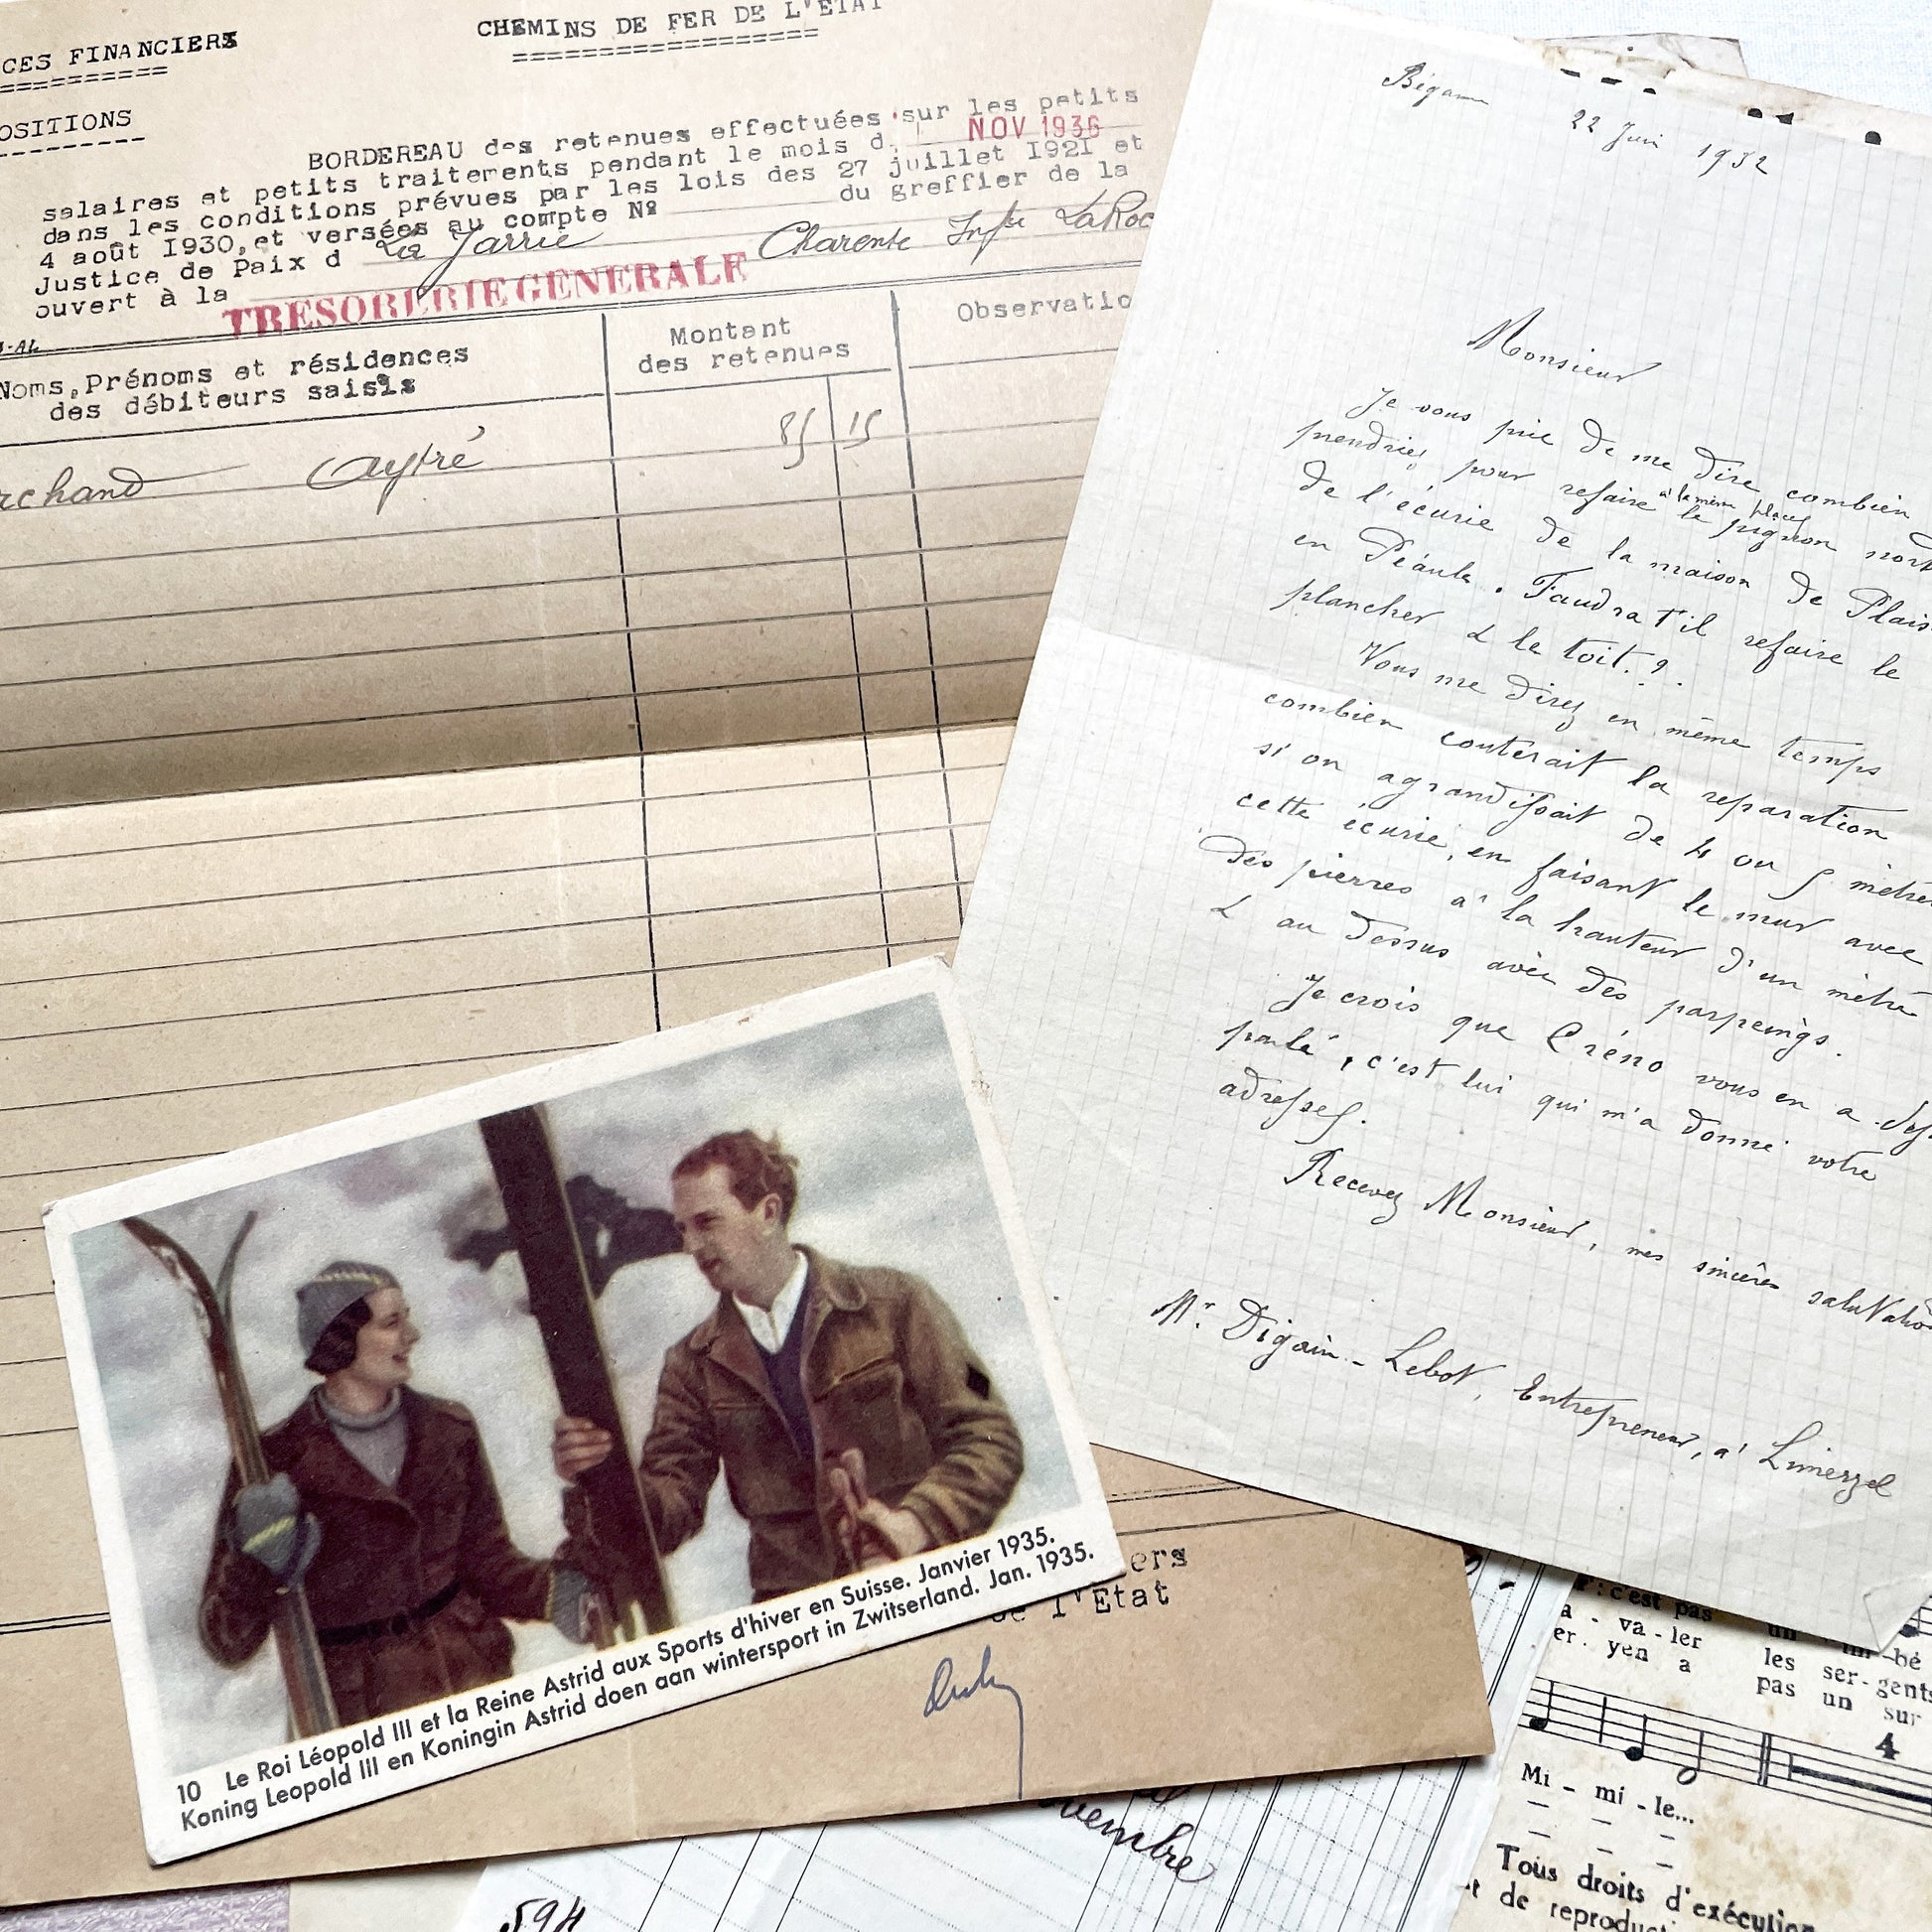 CES FINANCIERS
OSITIONS
CHEMINS DE FER DE L'ETAT
BORDEREAU des retenues effectuées sur les petits
salaires et petits traitements pendant le mois d NOV 1936
dans les conditions prévues par les lois des 27 juillet 1921 et
4 août 1930, et versées au compte Nº du greffier de la
Justice de Paix d La Jarrie Charente Infre LaRoc
ouvert à la
TRESORERIE GENERALE
Noms, Prénoms et résidences
des débiteurs saisis
Montant
des retenues
Observatio
rchand Aytré 85 15
ers
de l'Etat
10 Le Roi Léopold III et la Reine Astrid aux Sports d'hiver en Suisse. Janvier 1935.
Koning Leopold III en Koningin Astrid doen aan wintersport in Zwitserland. Jan. 1935.
22 Juin 1932
Monsieur
Je vous prie de me dire combien
prendriez pour refaire à la même place le pignon nord
de l'écurie de la maison de Plais
en Péaule. Faudra t'il refaire le
plancher & le toit.?.
Vous me direz en même temps
combien couterait la reparation
si on agrandissait de 4 ou 5 mètres
cette écurie, en faisant le mur avec
des pierres à la hauteur d'un mètre
& au dessus avec des parpeings.
Je crois que Créno vous en a
parlé, c'est lui qui m'a donné votre
adresse.
Recevez Monsieur, mes sincères salutatio
Mr. Digain-Lebot, Entrepreneur, à Limerzel
: c'est pas
a - va - ler
er. yen a
un bé
les ser - gents
pas un sur
4
Mi - mi - le...
Tous droits d'exécution
t de reproduc
vembre
594